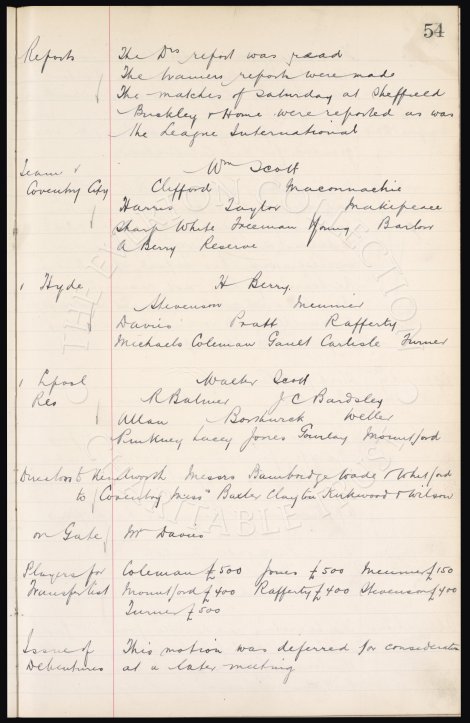 54
Reports The Drs report was read
The trainers reports were made
The matches of Saturday at Sheffield
Buckley & Home were reported as was
the League International
Team v Wm Scott
Coventry City Clifford Maconnachie
Harris Taylor Makepeace
Sharp White Freeman Young Barlow
A Berry Reserve
" Hyde H Berry
Stevenson Meunier
Davies Pratt Rafferty
Michaels Coleman Gault Carlisle Turner
" Lpool Walter Scott
Res R Balmer J C Bardsley
Allan Borthwick Weller
Pinkney Lacey Jones Gourlay Mountford
Directors to Messrs Bainbridge Wade & Whitford
to Coventry Messrs Baxter Clayton Kirkwood & Wilson
on Gate Mr Davies
Players for Coleman £500 Jones £500 Meunier £150
Transfer list Mountford £400 Rafferty £400 Stevenson £400
Turner £500
Issue of This motion was deferred for consideration
Debentures at a later meeting
THE EVERTON COLLECTION
CHARITABLE TRUST